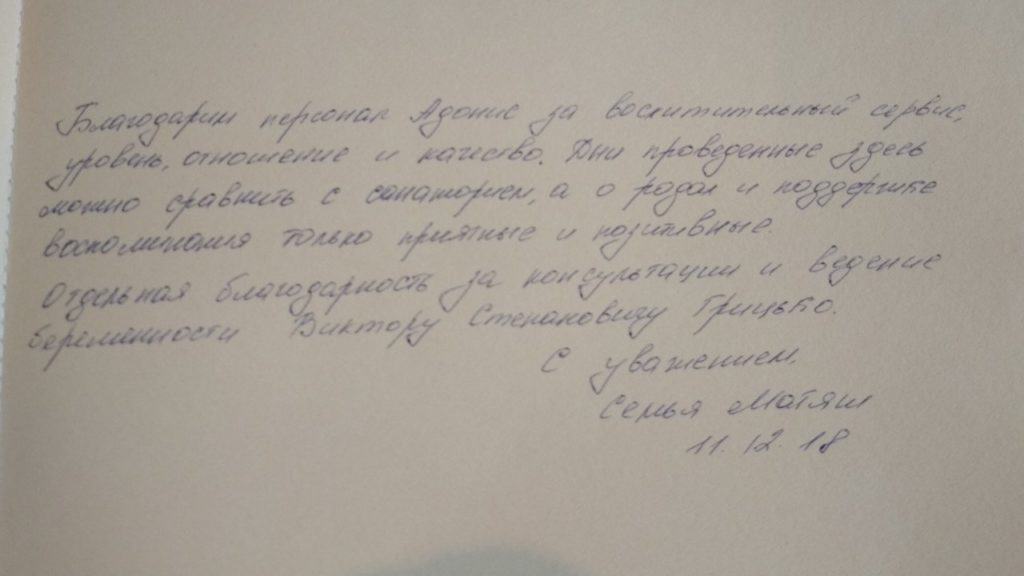 Благодарим персонал Адонис за восхитительный сервис,
уровень, отношение и качество. Дни проведенные здесь
можно сравнить с санаторием, а о родах и поддержке
воспоминания только приятные и позитивные.
Отдельная благодарность за консультации и ведение
беременности Виктору Степановичу Грицько.
С уважением,
Семья Матяш
11.12.18